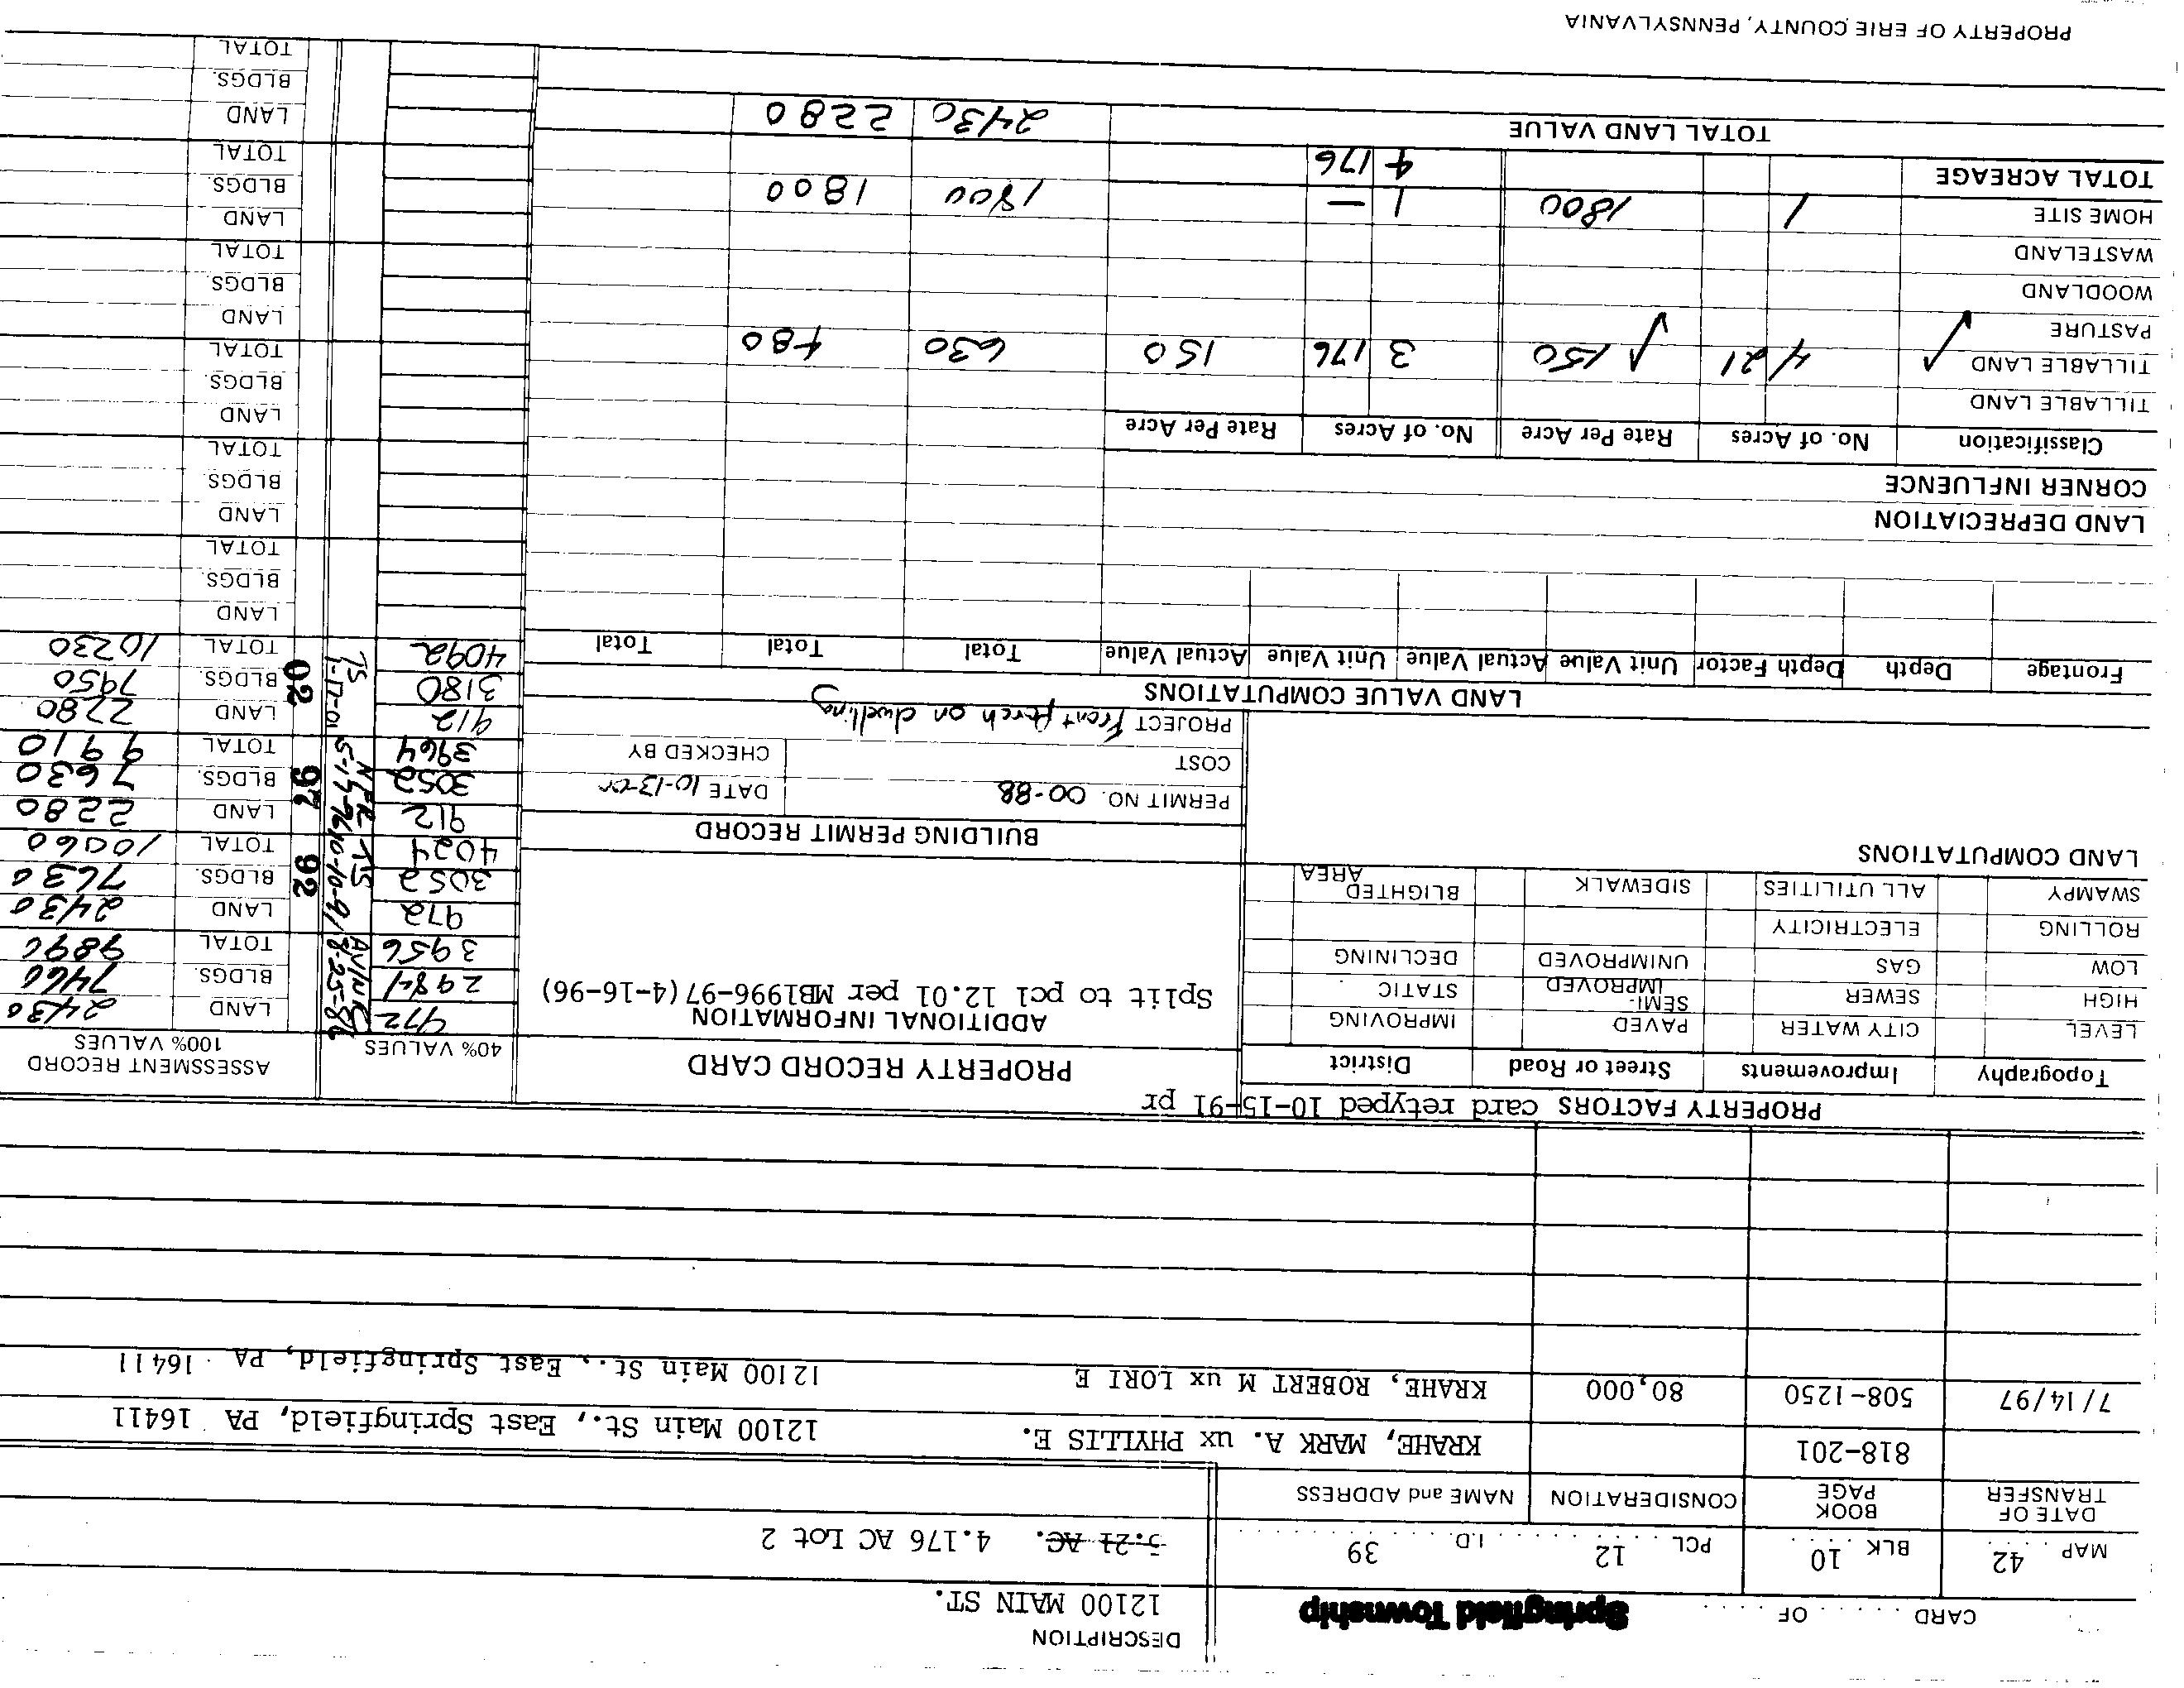 CARD OF Springfield Township
DESCRIPTION
12100 MAIN ST.
MAP 42 BLK 10 PCL 12 I.D. 39
5.21 AC. 4.176 AC Lot 2
DATE OF TRANSFER BOOK PAGE CONSIDERATION NAME and ADDRESS
818-201 KRAHE, MARK A. ux PHYLLIS E. 12100 Main St., East Springfield, PA 16411
7/14/97 508-1250 80,000 KRAHE, ROBERT M ux LORI E 12100 Main St., East Springfield, PA 16411
PROPERTY FACTORS card retyped 10-15-91 pr
Topography Improvements Street or Road District
LEVEL CITY WATER PAVED IMPROVING
HIGH SEWER SEMI-IMPROVED STATIC
LOW GAS UNIMPROVED DECLINING
ROLLING ELECTRICITY
SWAMPY ALL UTILITIES SIDEWALK BLIGHTED AREA
LAND COMPUTATIONS
PROPERTY RECORD CARD
ADDITIONAL INFORMATION
Split to pcl 12.01 per MB1996-97 (4-16-96)
BUILDING PERMIT RECORD
PERMIT NO. 00-88 DATE 10-13-00
COST CHECKED BY
PROJECT Front Porch on dwelling
40% VALUES ASSESSMENT RECORD 100% VALUES
972 LAND 2430
2984 BLDGS. 7460
3956 8-25-86 TOTAL 9890
972 LAND 2430
3052 10-10-91 92 BLDGS. 7630
4024 TOTAL 10060
912 LAND 2280
3052 5-17-96 97 BLDGS. 7630
3964 TOTAL 9910
912 LAND 2280
3180 1-17-01 02 BLDGS. 7950
4092 TS TOTAL 10230
LAND
BLDGS.
TOTAL
LAND
BLDGS.
TOTAL
LAND
BLDGS.
TOTAL
LAND
BLDGS.
TOTAL
LAND
BLDGS.
TOTAL
LAND
BLDGS.
TOTAL
LAND VALUE COMPUTATIONS
Frontage Depth Depth Factor Unit Value Actual Value Unit Value Actual Value Total Total Total
LAND DEPRECIATION
CORNER INFLUENCE
Classification No. of Acres Rate Per Acre No. of Acres Rate Per Acre
TILLABLE LAND
TILLABLE LAND 4 21 150 3 176 150 630 480
PASTURE
WOODLAND
WASTELAND
HOME SITE 1 1800 1 — 1800 1800
TOTAL ACREAGE 4 176
TOTAL LAND VALUE 2430 2280
PROPERTY OF ERIE COUNTY, PENNSYLVANIA